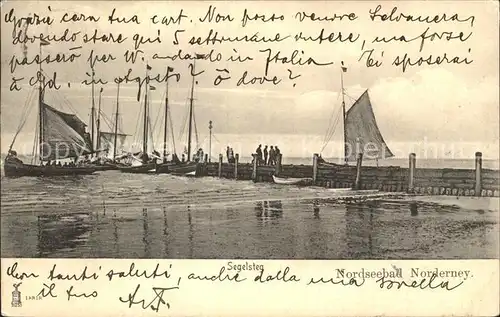 Grazie cara tua cart. Non posso venire Selvanera,
dovendo stare qui 5 settimane intere, ma forse
passerò per W. andando in Italia Ti sposerai
a in agosto? ò dove?
Segelsteg
Nordseebad Norderney.
Con tanti saluti, anche dalla mia sorella
il tuo